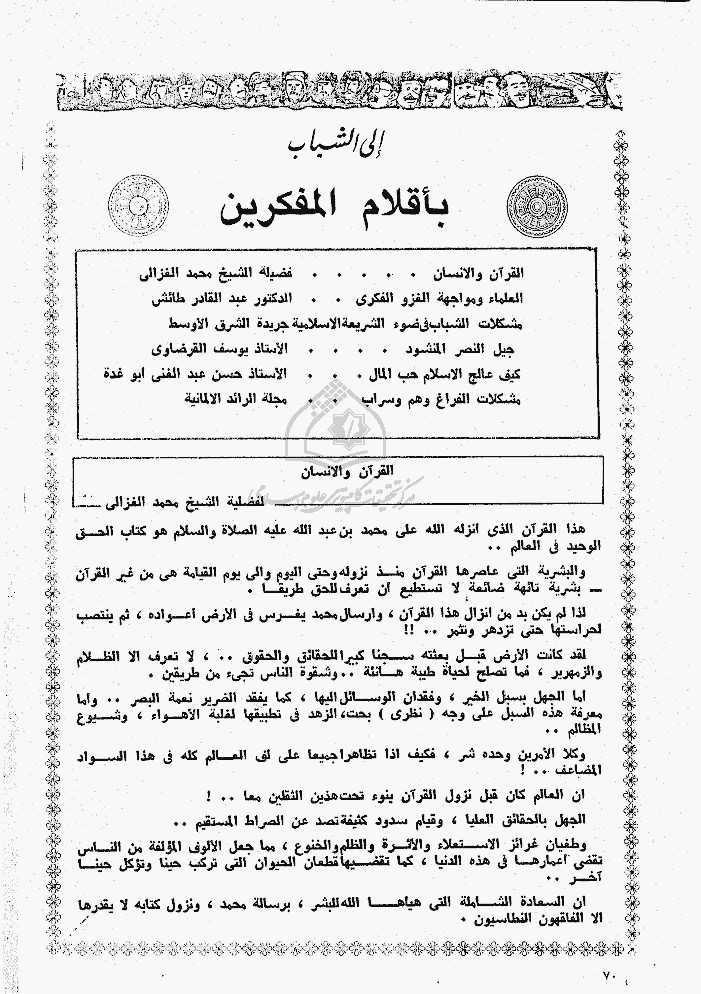 إلى الشباب
بأقلام المفكرين
القرآن والانسان . . . . . فضيلة الشيخ محمد الغزالى
العلماء ومواجهة الغزو الفكرى . . الدكتور عبد القادر طائش
مشكلات الشباب فى ضوء الشريعة الاسلامية جريدة الشرق الأوسط
جيل النصر المنشود . . . . الأستاذ يوسف القرضاوى
كيف عالج الاسلام حب المال . . . الأستاذ حسن عبد الغنى ابو غدة
مشكلات الفراغ وهم وسراب . . مجلة الرائد الالمانية
القرآن والانسان
لفضلية الشيخ محمد الغزالى
هذا القرآن الذى انزله الله على محمد بن عبد الله عليه الصلاة والسلام هو كتاب الحـق
الوحيد فى العالم ..
والبشرية التى عاصرها القرآن منـذ نزوله وحتى اليوم والى يوم القيامة هى من غير القرآن
ــ بشرية تائهة ضائعة لا تستطيع أن تعرف للحق طريقـا .
لذا لم يكن بد من انزال هذا القرآن ، وارسال محمد يغـرس فى الأرض أعـواده ، ثم ينتصب
لحراستها حتى تزدهر وتثمر .. !!
لقد كانت الأرض قبـل بعثته سـجنا كبيرا للحقائق والحقوق .. ، لا تعرف الا الظـلام
والزمهرير ، فما تصلح لحياة طيبة هـانئة .. وشقوة الناس تجىء من طريقين .
أما الجهل بسبل الخير ، وفقدان الوسـائل اليها ، كما يفقد الضرير نعمة البصر .. وأما
معرفة هذه السبل على وجه ( نظرى ) بحت، الزهد فى تطبيقها لغلبة الأهـواء ، وشـيوع
المظالم ..
وكلا الأمرين وحده شر ، فكيف اذا تظاهرا جميعا على لف العـالم كله فى هذا السـواد
المضاعف .. !
ان العالم كان قبل نزول القرآن ينوء تحت هذين الثقلين معا .. !
الجهل بالحقائق العليا ، وقيام سدود كثيفة تصد عن الصراط المستقيم ..
وطغيان غرائز الاسـتعلاء والأثـرة والظلم والخنوع ، مما جعل الألوف المؤلفة من النـاس
تقضى أعمارهـا فى هذه الدنيا ، كما تقضـيها قطعان الحيوان التى تركب حينا وتؤكل حينـا
آخـر ..
ان السعادة الشـاملة التى هيأهـا الله للبشر ، برسالة محمد ، ونزول كتابه لا يقدرها
الا الفاقهون النطاسيون .
٧٠